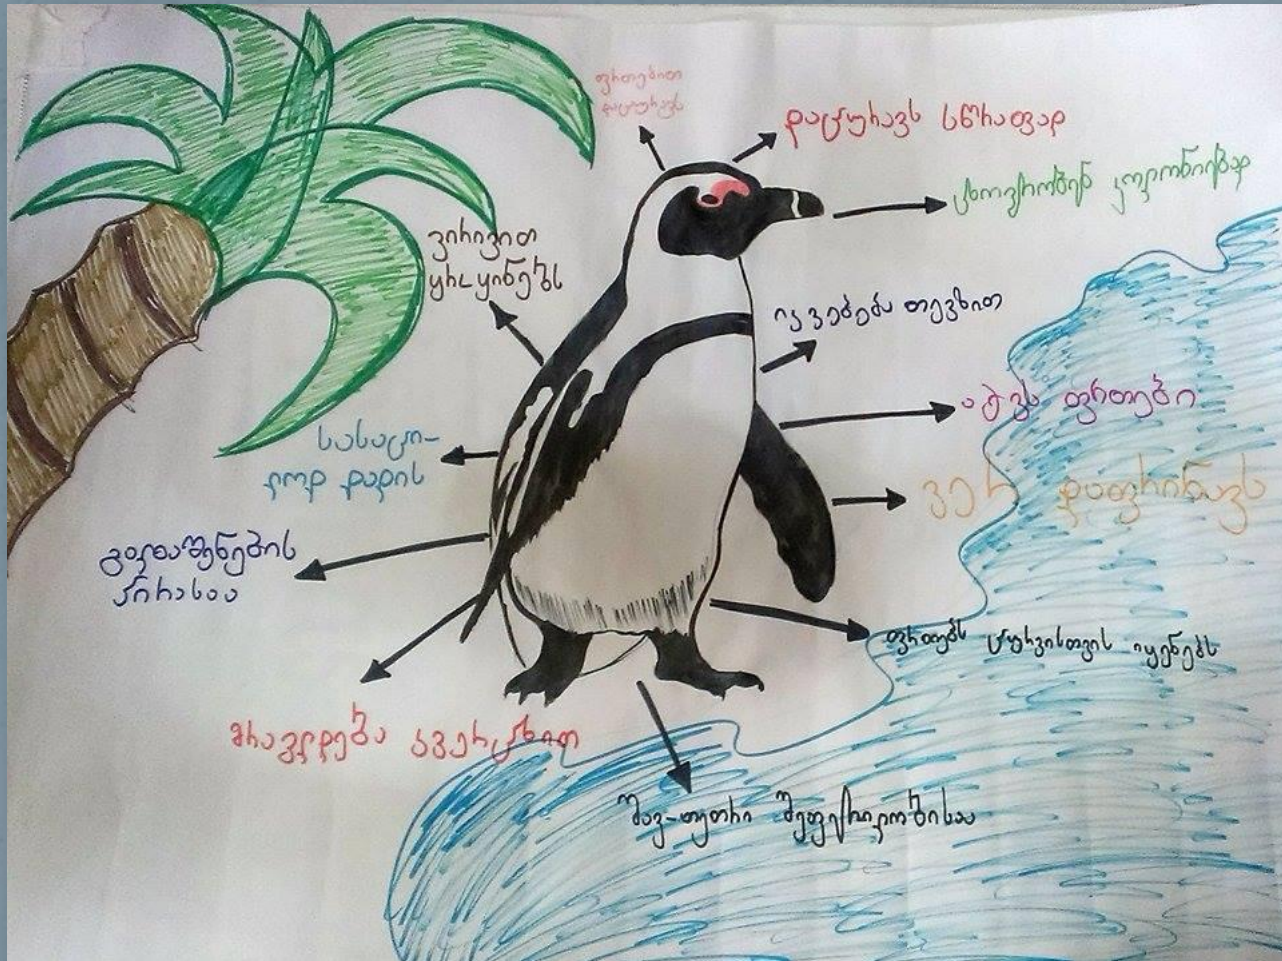 ფრთებით
დაცურავს
დაცურავს სწრაფად
ცხოვრობენ კოლონიებად
ვირივით
ყროყინებს
იკვებება თევზით
აქვს ფრთები
სასაცი-
ლოდ დადის
ვერ დაფრინავს
გადაშენების
პირასაა
ფრთებს ცურვისთვის იყენებს
მრავლდება კვერცხით
შავ-თეთრი შეფერილობისაა